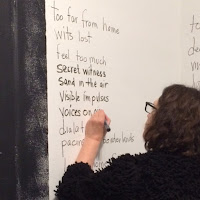 too far from home
wits lost
feel too much
secret witness
sand in the air
visible impulses
voices on
pacin
to
d